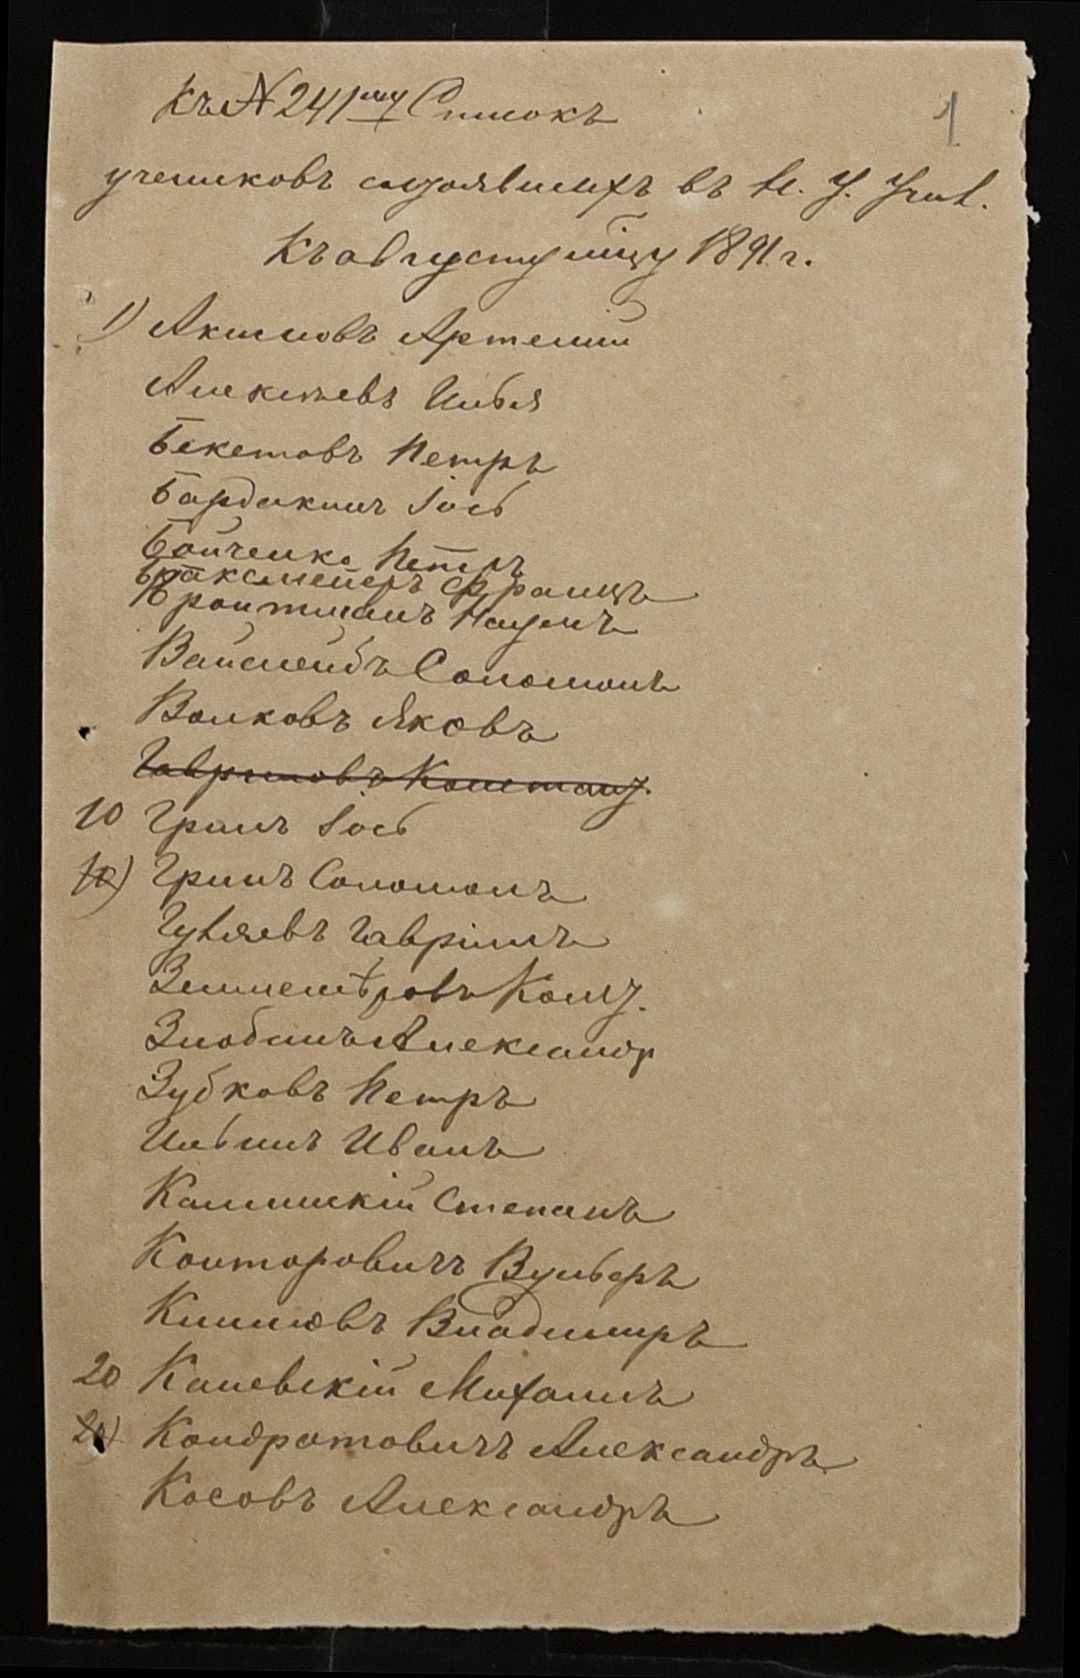 Къ № 241му Списокъ
1
учениковъ состоявшихъ въ Н. У. Учил.
Къ августу мѣцу 1891 г.
1) Акимовъ Артемий
Алексѣевъ Илья
Бекетовъ Петръ
Бардакинъ Іось
Бойченко Петръ
Браксмейеръ Францъ
Бройтманъ Наумъ
Вайслейбъ Соломонъ
Волковъ Яковъ
Гавриловъ Констант.
10 Гринъ Іось
10) Гринъ Соломонъ
Гуляевъ Гавріилъ
Конст.
Злобинъ Александр
Зубковъ Петръ
Ильинъ Иванъ
Калинскій Степанъ
Канторовичъ Вульфъ
Климовъ Владимиръ
20 Каневскій Михаилъ
20) Кондратовичъ Александръ
Косовъ Александръ